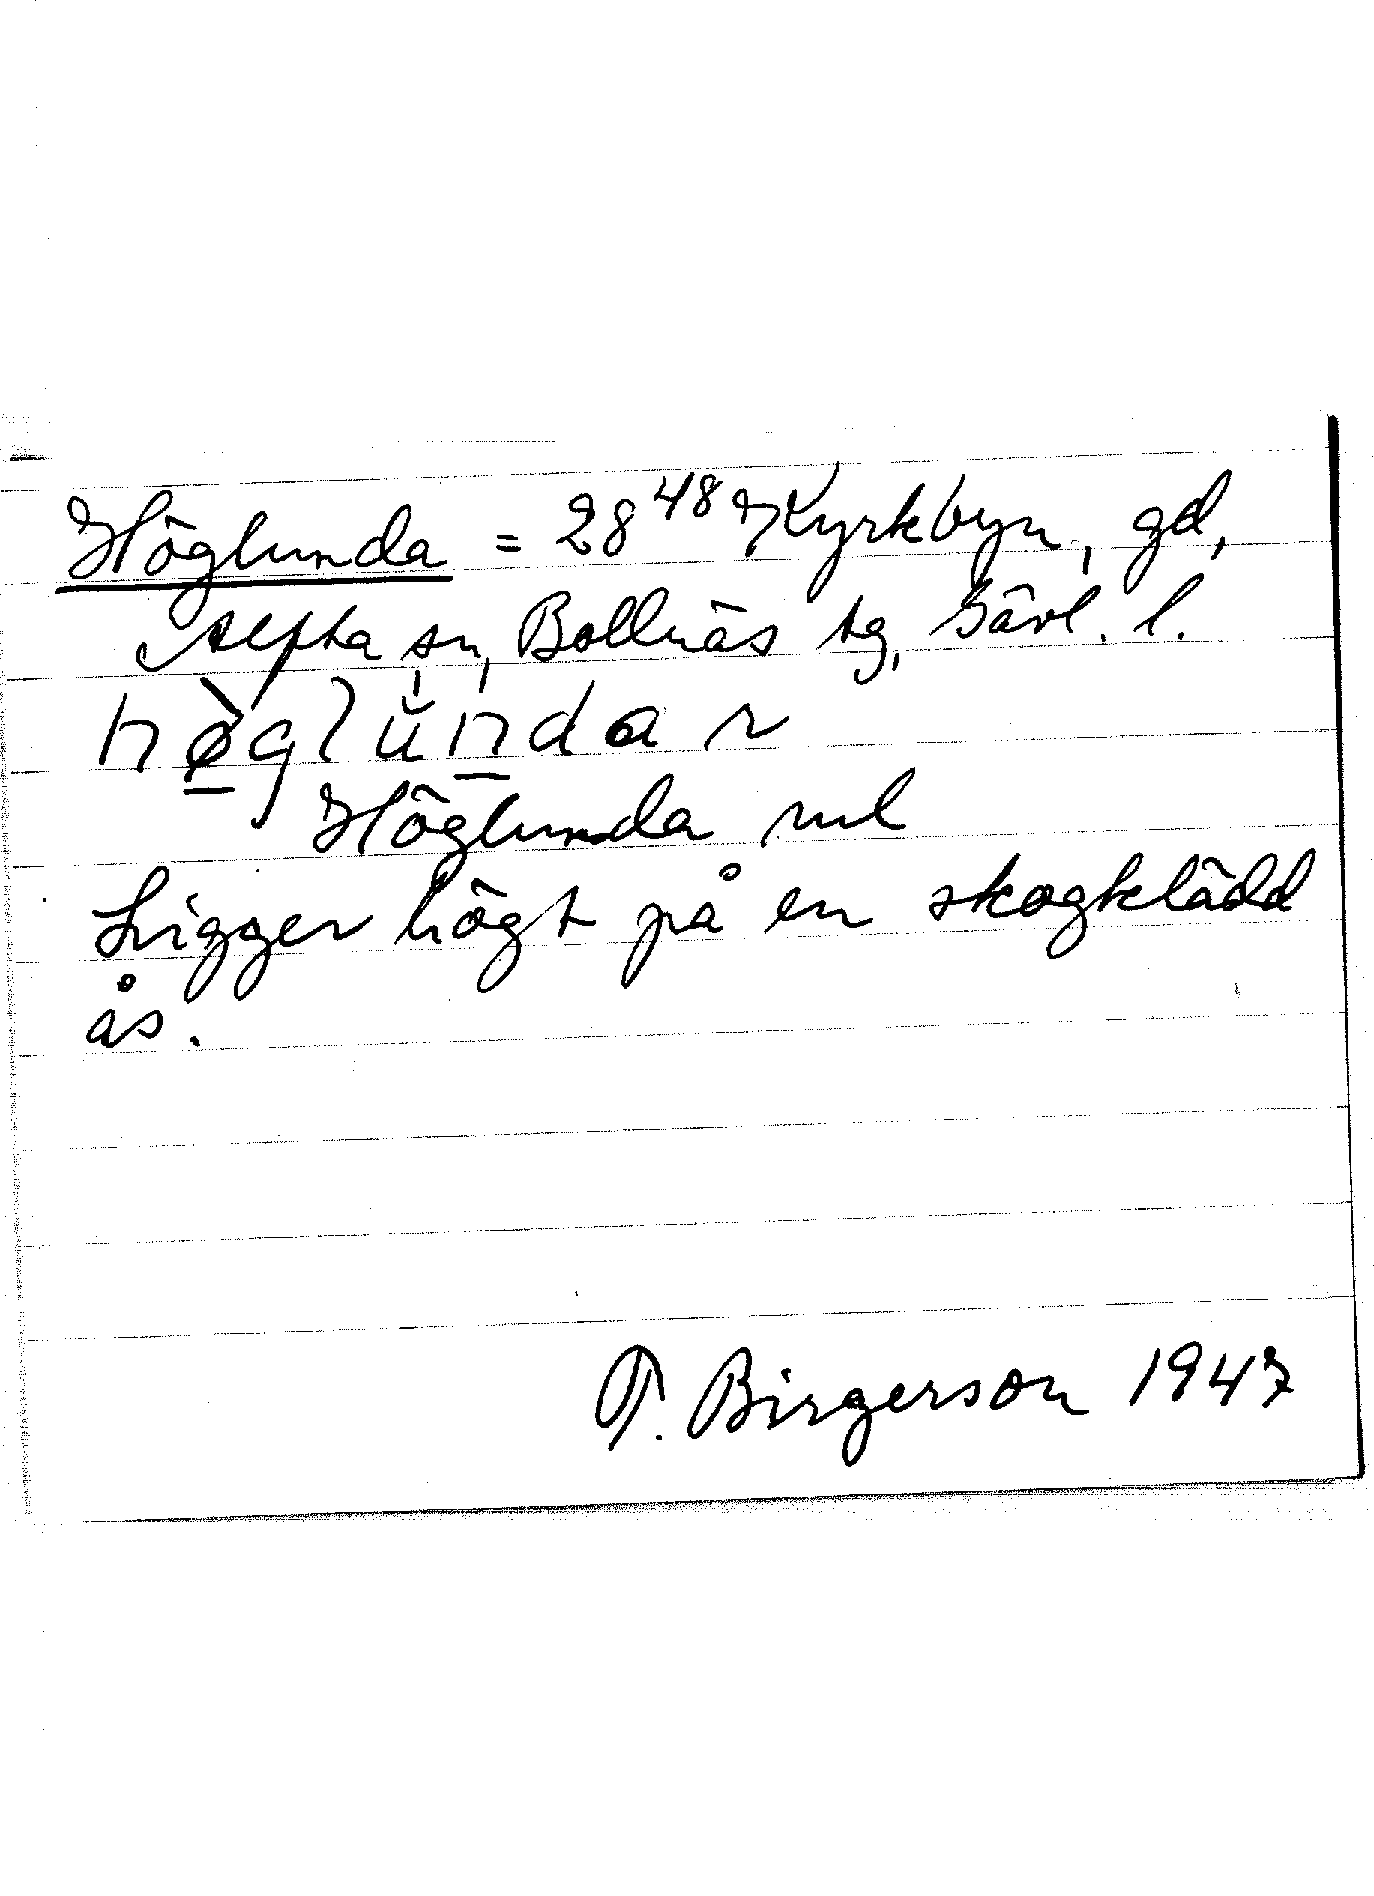 Höglunda = 28⁴⁸ Kyrkbyn, gd,
Alfta sn, Bollnäs tg, Gävl. l.
hø̀glŭndar
Höglunda rul
Ligger högt på en skogklädd
ås.
T. Birgerson 1947